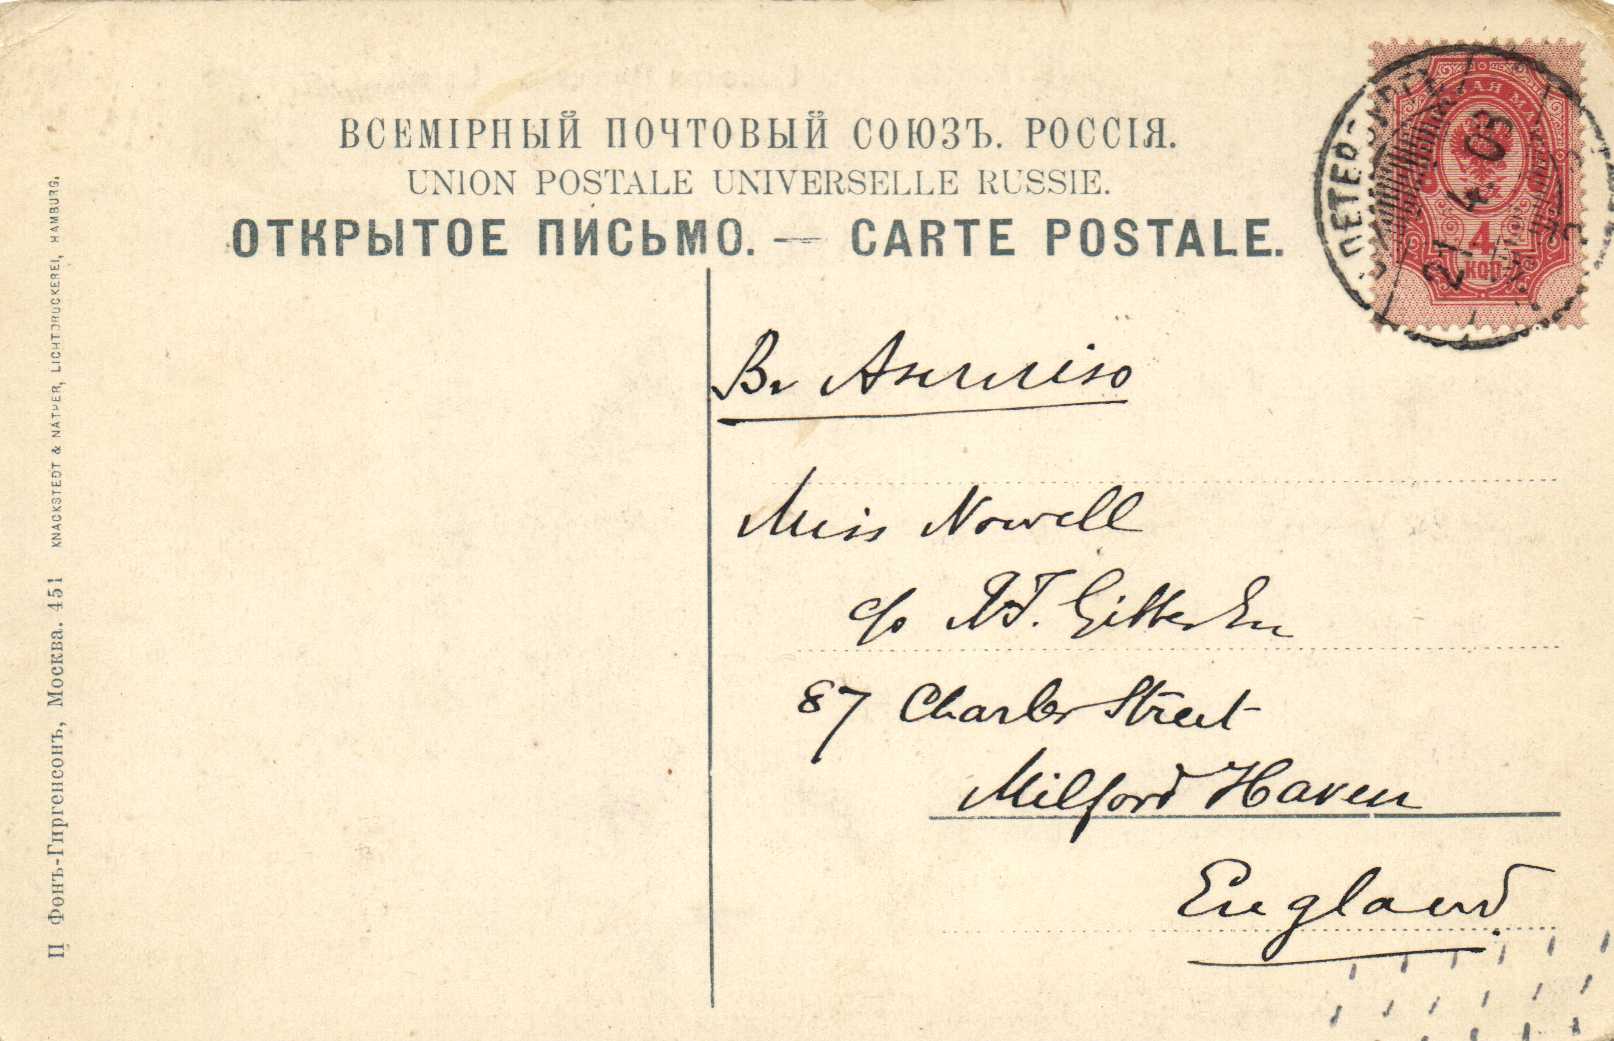 ВСЕМІРНЫЙ ПОЧТОВЫЙ СОЮЗЪ. РОССІЯ.
UNION POSTALE UNIVERSELLE RUSSIE.
ОТКРЫТОЕ ПИСЬМО. — CARTE POSTALE.
4
КОП
21 4 05
Въ Англію
Miss Nowell
c/o
87 Charles Street
Milford Haven
England
П Фонъ-Гиргенсонъ, Москва. 451 KNACKSTEDT & NÄTHER, LICHTDRUCKEREI, HAMBURG.